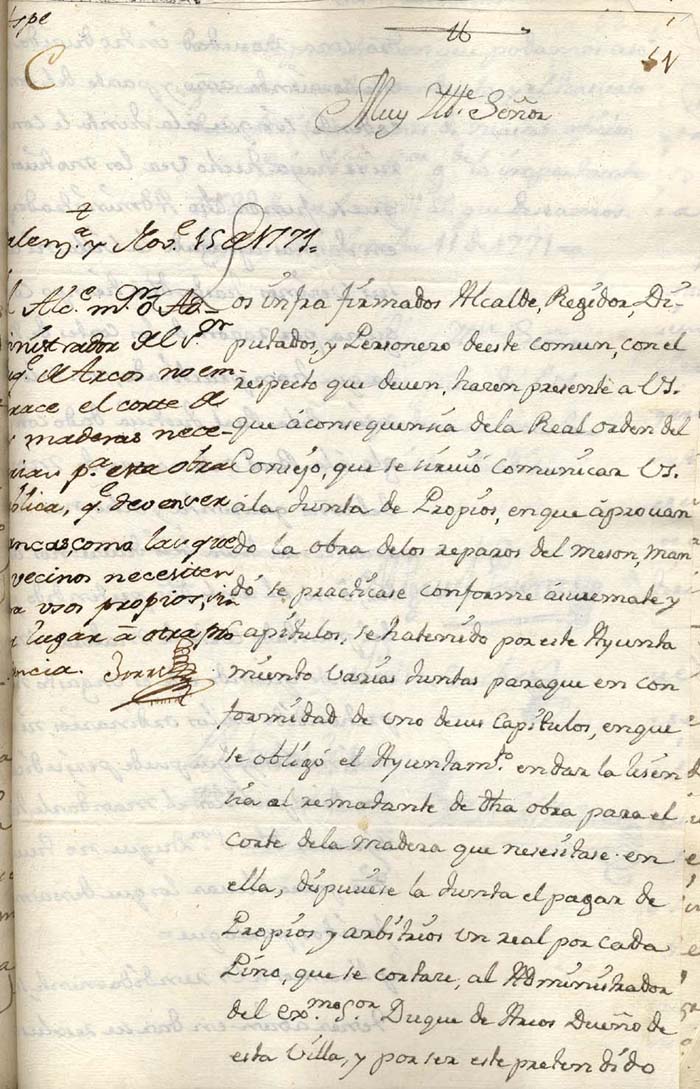 Muy Iltre. Señor
Valenza. y Nove. 15 de 1771.
l Alce. mor. o Ad-
ministrador del Sr.
Duqe. de Arcos no em-
brace el corte de
s maderas nece-
rias pa. esta obra
blica, qe. deven ser
ancas, como las que
vecinos necesiten
a usos propios, sin
lugar a otra pro
encia.
os infra firmados Alcalde, Regidor, Di-
putados, y Personero deeste comun, con el
respecto que deven, hazen presente a VS.
que áconsequensia dela Real orden del
Consejo, que se sirvió comunicar VS.
ála Junta de Propios, enque áprovan
do la obra delos reparos del meson, man
dó se practicase conforme ásuremate y
Capitulos, se hatenido por este Ayunta
miento varias Juntas paraque en con
formidad de uno desus Capitulos, enque
se obligó el Ayuntamto. endar la lisen
sia al rematante de dha obra para el
corte dela madera que nesesitase en
ella, dispusiese la Junta el pagar de
Propios y arbitrios un real por cada
Pino, que se cortare, al Administrador
del Exmo. Sor. Duque de Arcos Dueño de
esta Villa, y por ser este pretendido